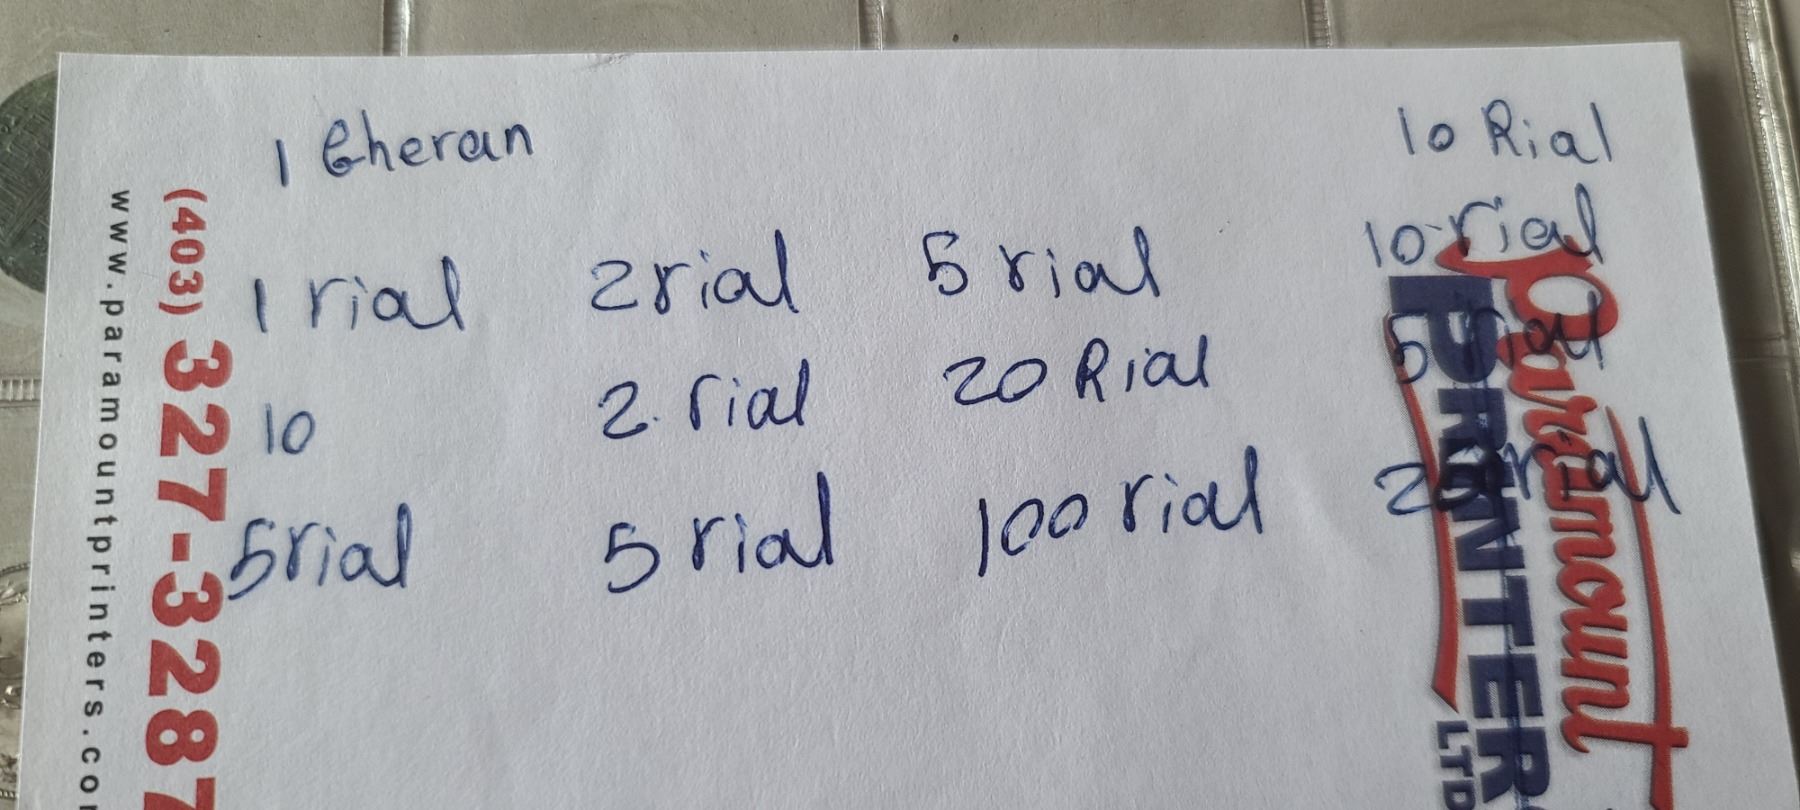 1 Gheran 10 Rial
1 rial 2 rial 5 rial 10 rial
10 2 rial 20 Rial 5 rial
5 rial 5 rial 100 rial 20 rial
(403) 327-3287
www.paramountprinters.co
Paramount
PRINTER
LTD